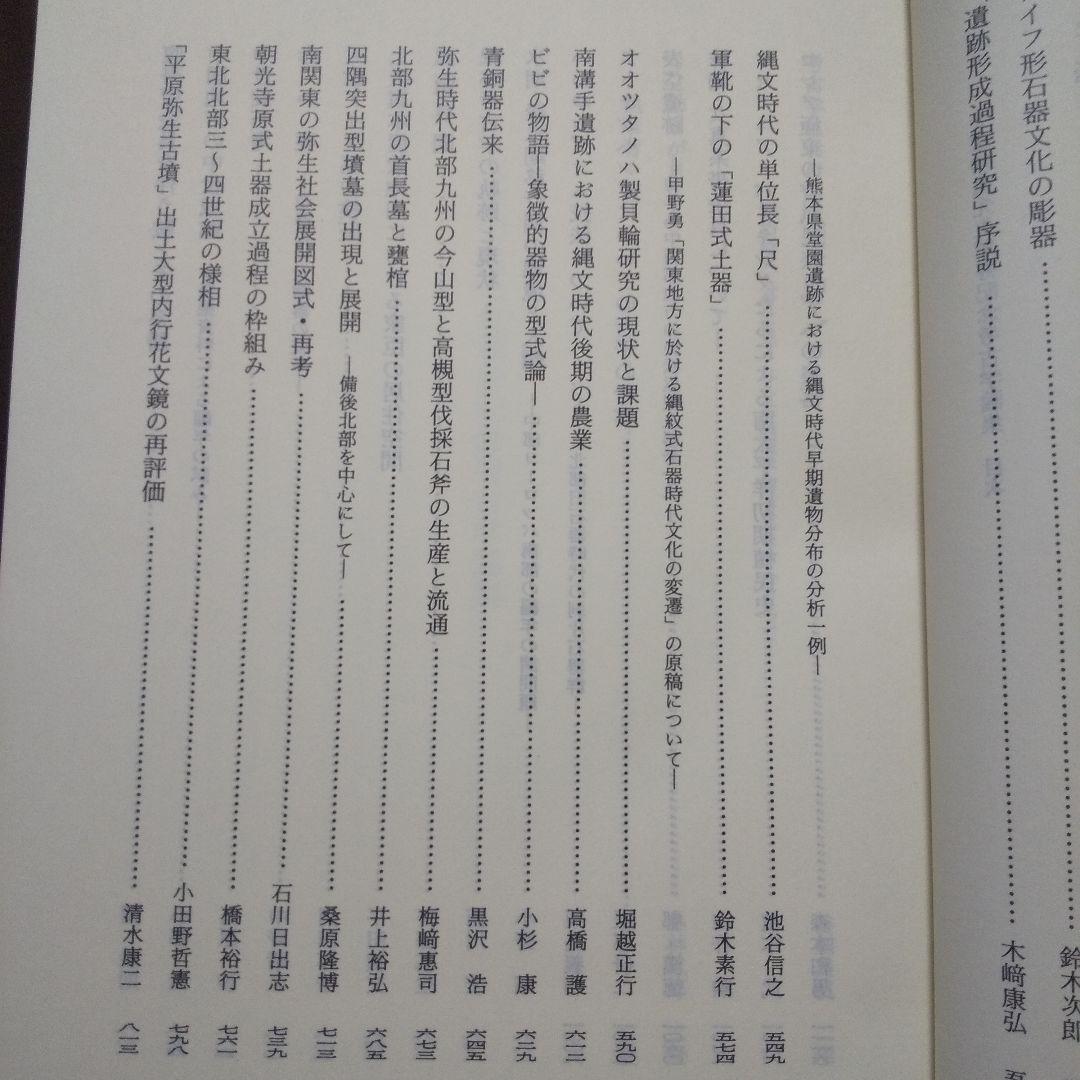 イフ形石器文化の彫器…………鈴木次郎
遺跡形成過程研究」序説…………木﨑康弘
―熊本県堂園遺跡における縄文時代早期遺物分布の分析一例―
縄文時代の単位長「尺」…………池谷信之 五四九
軍靴の下の「蓮田式土器」…………鈴木素行 五七四
―甲野勇「関東地方に於ける縄紋式石器時代文化の変遷」の原稿について―
オオツタノハ製貝輪研究の現状と課題…………堀越正行 五九〇
南溝手遺跡における縄文時代後期の農業…………高橋 護 六一二
ビビの物語―象徴的器物の型式論―…………小杉 康 六二九
青銅器伝来…………黒沢 浩 六四五
弥生時代北部九州の今山型と高槻型伐採石斧の生産と流通…………梅﨑惠司 六七三
北部九州の首長墓と甕棺…………井上裕弘 六八五
四隅突出型墳墓の出現と展開 ―備後北部を中心にして―…………桑原隆博 七一三
南関東の弥生社会展開図式・再考…………石川日出志 七三九
朝光寺原式土器成立過程の枠組み…………橋本裕行 七六一
東北北部三～四世紀の様相…………小田野哲憲 七九八
「平原弥生古墳」出土大型内行花文鏡の再評価…………清水康二 八一三